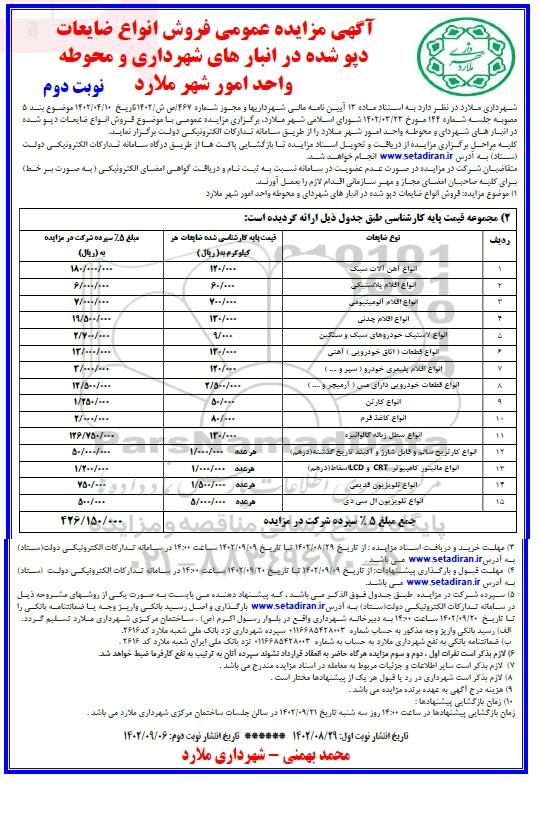 آگهی مزایده عمومی فروش انواع ضایعات
دپو شده در انبار های شهرداری و محوطه
واحد امور شهر ملارد
نوبت دوم
شهرداری ملارد در نظر دارد به استناد ماده ۱۳ آیین نامه مالی شهرداریها و مجوز شماره ۴۶۷/ص ش/۱۴۰۲تاریخ ۱۴۰۲/۰۴/۱۰ موضوع بند ۵
مصوبه جلسه شماره ۱۴۴ مورخ ۱۴۰۲/۰۳/۲۳ شورای اسلامی شهر ملارد، برگزاری مزایده عمومی با موضوع فروش انواع ضایعات دپو شده
در انبار های شهرداری و محوطه واحد امور شهر ملارد را از طریق سامانه تدارکات الکترونیکی دولت برگزار نماید.
کلیه مراحل برگزاری مزایده از دریافت و تحویل اسناد مزایده تا بازگشایی پاکت ها از طریق درگاه سامانه تدارکات الکترونیکی دولت
(ستاد) به آدرس www.setadiran.ir انجام خواهد شد.
متقاضیان شرکت در مزایده در صورت عدم عضویت در سامانه نسبت به ثبت نام و دریافت گواهی امضای الکترونیکی ( به صورت بر خط)
برای کلیه صاحبان امضای مجاز و مهر سازمانی اقدام لازم را بعمل آورند.
۱) موضوع مزایده: فروش انواع ضایعات دپو شده در انبار های شهرداری و محوطه واحد امور شهر ملارد
۲) مجموعه قیمت پایه کارشناسی طبق جدول ذیل ارائه گردیده است:
ردیف نوع ضایعات قیمت پایه کارشناسی شده ضایعات هر کیلوگرم به( ریال) مبلغ ۵% سپرده شرکت در مزایده به (ریال)
۱ انواع آهن آلات سبک ۱۲۰/۰۰۰ ۱۸۰/۰۰۰/۰۰۰
۲ انواع اقلام پلاستیکی ۶۰/۰۰۰ ۶/۰۰۰/۰۰۰
۳ انواع اقلام آلومینیومی ۷۰۰/۰۰۰ ۷/۰۰۰/۰۰۰
۴ انواع اقلام چدنی ۱۳۰/۰۰۰ ۱۹/۵۰۰/۰۰۰
۵ انواع لاستیک خودروهای سبک و سنگین ۹/۰۰۰ ۲/۷۰۰/۰۰۰
۶ انواع قطعات ( اتاق خودرویی ) آهنی ۱۳۰/۰۰۰ ۱۳/۰۰۰/۰۰۰
۷ انواع اقلام پلیمری خودرو ( سپر و .... ) ۱۲۰/۰۰۰ ۳/۰۰۰/۰۰۰
۸ انواع قطعات خودرویی دارای مس ( آرمیچر و .... ) ۲/۵۰۰/۰۰۰ ۱۲/۵۰۰/۰۰۰
۹ انواع کارتن ۵۰/۰۰۰ ۱/۲۵۰/۰۰۰
۱۰ انواع کاغذ فرم ۸۰/۰۰۰ ۲/۰۰۰/۰۰۰
۱۱ انواع سطل زباله گالوانیزه ۱۳۰/۰۰۰ ۱۲۶/۷۵۰/۰۰۰
۱۲ انواع کارتریج سالم و قابل شارژ و اکبند تاریخ گذشته(درهم) هرعدد ۱/۰۰۰/۰۰۰ ۵۰/۰۰۰/۰۰۰
۱۳ انواع مانیتور کامپیوتر CRT و LCDاسقاط(درهم) هرعدد ۱/۰۰۰/۰۰۰ ۱/۲۰۰/۰۰۰
۱۴ انواع تلویزیون قدیمی هرعدد ۱/۵۰۰/۰۰۰ ۷۵۰/۰۰۰
۱۵ انواع تلویزیون ال سی دی هرعدد ۵/۰۰۰/۰۰۰ ۵۰۰/۰۰۰
جمع مبلغ ۵ % سپرده شرکت در مزایده ۴۲۶/۱۵۰/۰۰۰
۳) مهلت خرید و دریافت اسناد مزایده : از تاریخ ۱۴۰۲/۰۸/۲۹ تا تاریخ ۱۴۰۲/۰۹/۰۹ ساعت ۱۴:۰۰ در سامانه تدارکات الکترونیکی دولت(ستاد)
به آدرس www.setadiran.ir می باشد .
۴) مهلت قبول و بارگذاری پیشنهادات: از تاریخ ۱۴۰۲/۰۹/۰۹ تا تاریخ ۱۴۰۲/۰۹/۲۰ ساعت ۱۴:۰۰ در سامانه تدارکات الکترونیکی دولت (ستاد)
به آدرس www.setadiran.ir می باشد.
۵) سپرده شرکت در مزایده طبق جدول فوق الذکر می باشد ، که پیشنهاد دهنده می بایست به صورت یکی از روشهای مشروحه ذیل
در سامانه تدارکات الکترونیکی دولت(ستاد) به آدرس www.setadiran.ir بارگذاری و اصل رسید بانکی واریز وجه یا ضمانتنامه بانکی را
تا تاریخ ۱۴۰۲/۰۹/۲۰ ساعت ۱۴:۰۰ به دبیرخانه شهرداری واقع در بلوار رسول اکرم (ص) ، ساختمان مرکزی شهرداری ملارد تسلیم گردد.
الف) رسید بانکی واریز وجه مذکور به حساب شماره ۰۱۱۶۶۸۵۴۲۸۰۰۳ سپرده شهرداری نزد بانک ملی شعبه ملارد کد۲۶۱۶
ب) ضمانتنامه بانکی به نفع شهرداری ملارد به حساب به شماره ۰۱۱۶۶۸۵۴۲۸۰۰۳ نزد بانک ملی ایران شعبه ملارد کد ۲۶۱۶ .
۶) لازم بذکر است نفرات اول ، دوم و سوم مزایده هرگاه حاضر به انعقاد قرارداد نشوند سپرده آنان به ترتیب به نفع کارفرما ضبط خواهد شد.
۷) لازم بذکر است سایر اطلاعات و جزئیات مربوط به معامله در اسناد مزایده مندرج می باشد .
۸) لازم بذکر است شهرداری در رد یا قبول هر یک از پیشنهادها مختار است .
۹) هزینه درج آگهی به عهده برنده مزایده می باشد .
۱۰) زمان بازگشایی پیشنهادها :
زمان بازگشایی پیشنهادها در ساعت ۱۴:۰۰ روز سه شنبه تاریخ ۱۴۰۲/۰۹/۲۱ در سالن جلسات ساختمان مرکزی شهرداری ملارد می باشد .
تاریخ انتشار نوبت اول: ۱۴۰۲/۰۸/۲۹ ****** تاریخ انتشار نوبت دوم: ۱۴۰۲/۰۹/۰۶
محمد بهمنی - شهرداری ملارد